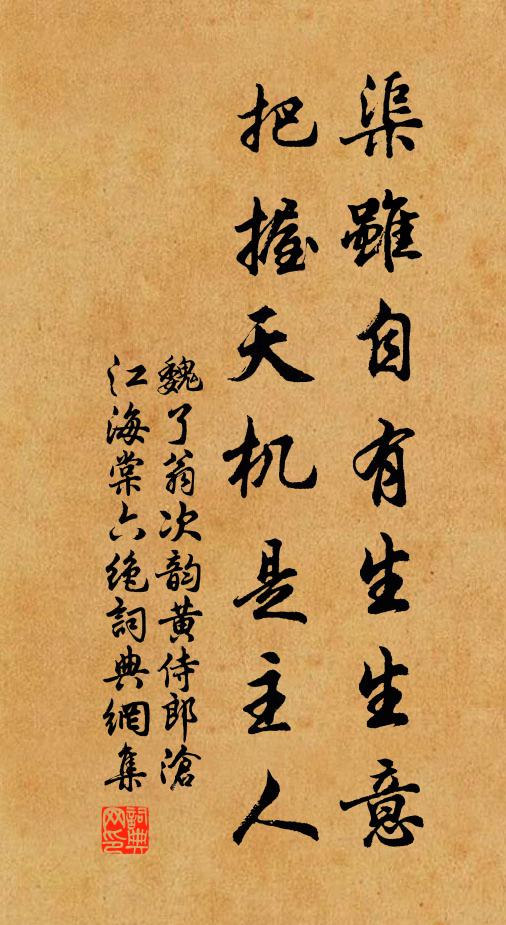 渠雖自有生生意
把握天机是主人
魏了翁次韵黄侍郎滄
江海棠六绝詞典網集
詞典网印